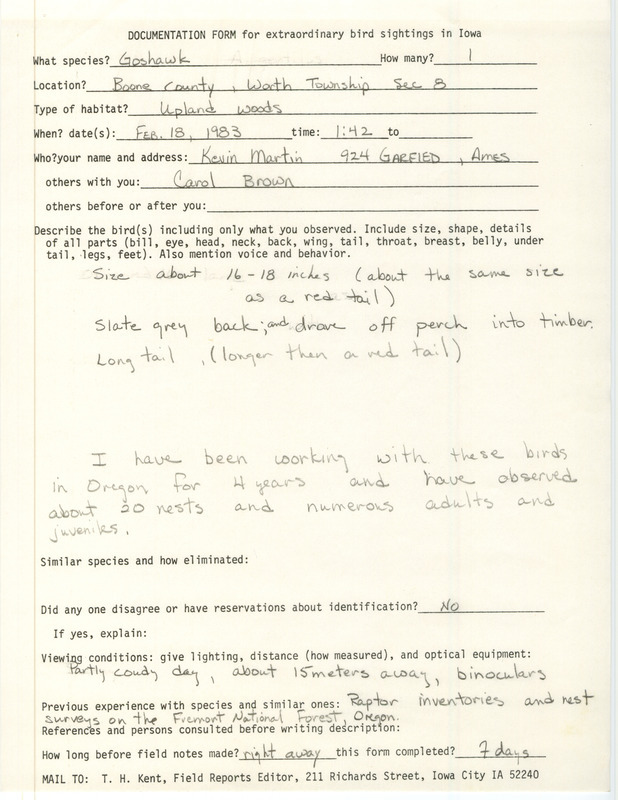 DOCUMENTATION FORM for extraordinary bird sightings in Iowa
What species? Goshawk How many? 1
Location? Boone County, Worth Township Sec 8
Type of habitat? Upland woods
When? date(s): Feb. 18, 1983 time: 1:42 to
Who?your name and address: Kevin Martin 924 GARFIED, Ames
others with you: Carol Brown
others before or after you:
Describe the bird(s) including only what you observed. Include size, shape, details
of all parts (bill, eye, head, neck, back, wing, tail, throat, breast, belly, under
tail, legs, feet). Also mention voice and behavior.
Size about 16-18 inches (about the same size
as a red tail)
Slate grey back; and drove off perch into timber.
Long tail, (longer then a red tail)
I have been working with these birds
in Oregon for 4 years and have observed
about 20 nests and numerous adults and
juveniles.
Similar species and how eliminated:
Did any one disagree or have reservations about identification? No
If yes, explain:
Viewing conditions: give lighting, distance (how measured), and optical equipment:
Partly coudy day, about 15 meters away, binoculars
Previous experience with species and similar ones: Raptor inventories and nest
surveys on the Fremont National Forest, Oregon.
References and persons consulted before writing description:
How long before field notes made? right away this form completed? 7 days
MAIL TO: T. H. Kent, Field Reports Editor, 211 Richards Street, Iowa City IA 52240